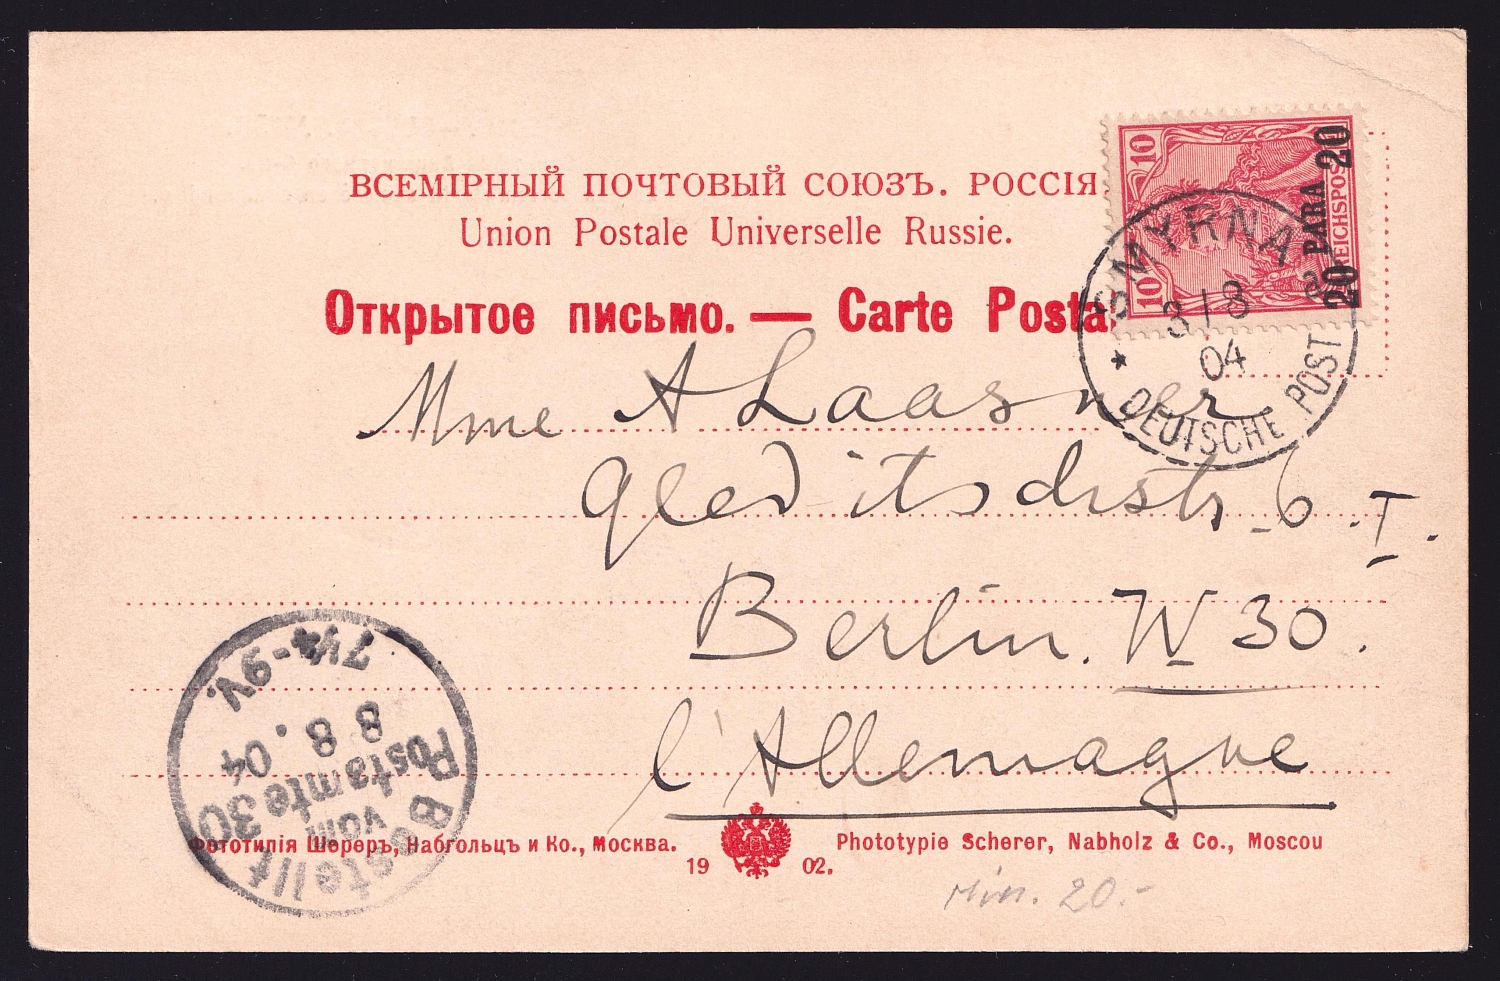 ВСЕМІРНЫЙ ПОЧТОВЫЙ СОЮЗЪ. РОССІЯ
Union Postale Universelle Russie.
Открытое письмо. — Carte Posta
10 10
REICHSPOST
20 PARA 20
SMYRNA
3/8
04
* DEUTSCHE POST
Mme A Laasner
Gleditschstr. 6. I.
Berlin. W 30.
l'Allemagne
Bestellt
vom
Postamte 30
8 8. 04
7¼-9V.
Фототипія Шереръ, Набгольцъ и Ко., Москва.
19 02.
Phototypie Scherer, Nabholz & Co., Moscou
Min. 20.-